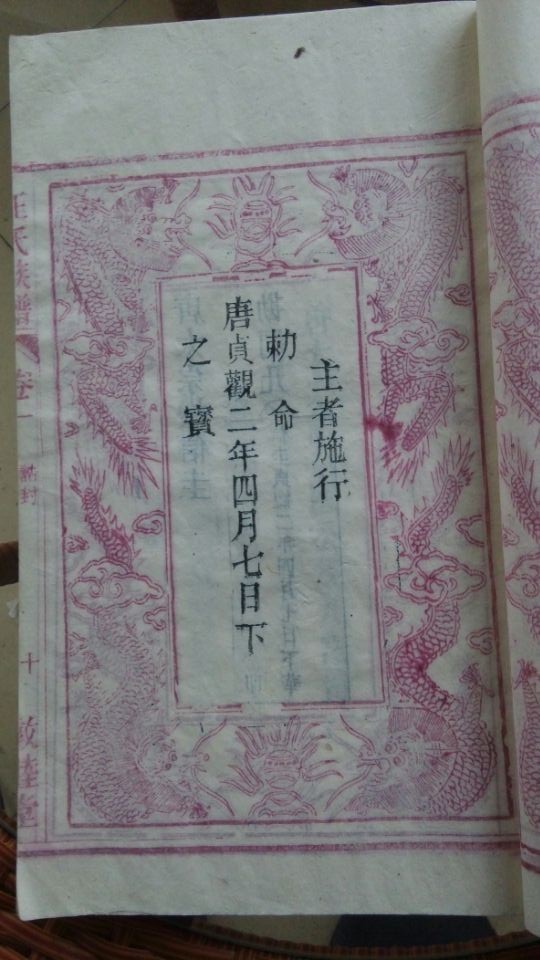 主者施行
勅命
唐貞觀二年四月七日下
之寳
氏族譜
卷一
誥封
十
敦睦堂